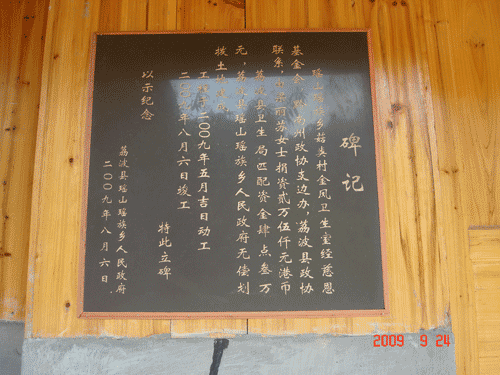 碑记
瑶山瑶族乡菇类村金凤卫生室经慈恩
基金会、黔南州政协支边办,荔波县政协
联系,丽芬女士捐资贰万伍仟元港币
荔波县卫生局匹配资金肆点叁万
元,荔波县瑶山瑶族乡人民政府无偿划
拨土地
工程于二00九年五月吉日动工
二00九年八月六日竣工
特此立碑
以示纪念
荔波县瑶山瑶族乡人民政府
二00九年八月六日.
2009 9 24